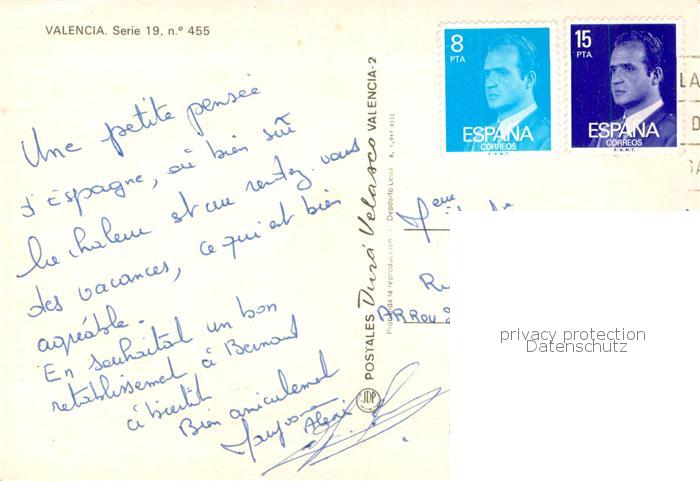 VALENCIA. Serie 19, n.º 455
Une petite pensée
d'Espagne, où bien sûr
la chaleur est au rendez-vous
des vacances, ce qui est bien
agréable.
En souhaitant un bon
rétablissement à Bernard
à bientôt
Bien amicalement
POSTALES Durá Velasco VALENCIA-2
Prohibida la reproducción - Depósito Legal B.
JDP
8
PTA
ESPAÑA
CORREOS
F.N.M.T.
15
PTA
ESPAÑA
CORREOS
F.N.M.T.
LA
D
privacy protection
Datenschutz